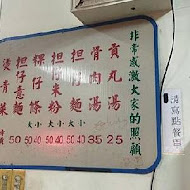 非常感激大家的照顧
貢丸湯
骨肉湯
担仔麵
担仔米粉
粿仔條
担仔意麵
燙青菜
大小 大小 大小
50 50 40 50 40 50 40 35 25
請寫點餐單